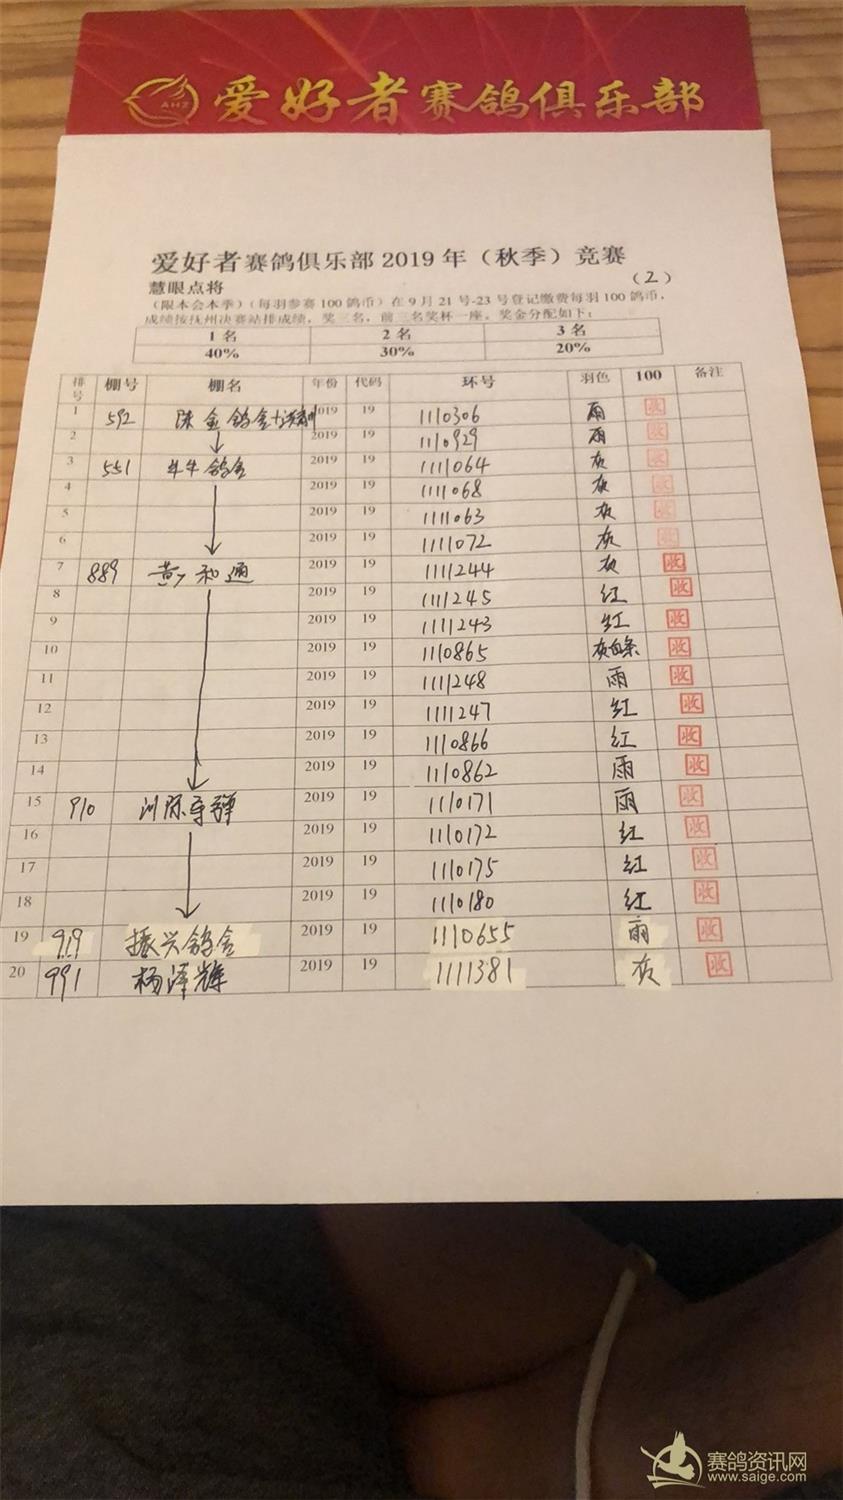 AHZ
爱好者赛鸽俱乐部
爱好者赛鸽俱乐部2019年（秋季）竞赛
慧眼点将 （2）
（限本会本季）（每羽参赛100鸽币）在9月21号-23号登记缴费每羽100鸽币，
成绩按抚州决赛站排成绩，奖三名，前三名奖杯一座。奖金分配如下：
1名 2名 3名
40% 30% 20%
排号 棚号 棚名 年份 代码 环号 羽色 100 备注
1 592 陈金鸽舍+ 2019 19 1110306 雨 收
2 2019 19 1110929 雨 收
3 551 牛牛鸽舍 2019 19 1111064 灰 收
4 2019 19 1111068 灰 收
5 2019 19 1111063 灰 收
6 2019 19 1111072 灰 收
7 889 黄 和通 2019 19 1111244 灰 收
8 2019 19 1111245 红 收
9 2019 19 1111243 红 收
10 2019 19 1110865 灰白条 收
11 2019 19 1111248 雨 收
12 2019 19 1111247 红 收
13 2019 19 1110866 红 收
14 2019 19 1110862 雨 收
15 910 洲际导弹 2019 19 1110171 雨 收
16 2019 19 1110172 红 收
17 2019 19 1110175 红 收
18 2019 19 1110180 红 收
19 919 振兴鸽舍 2019 19 1110655 雨 收
20 991 杨泽辉 2019 19 1111381 灰 收
赛鸽资讯网
www.saige.com